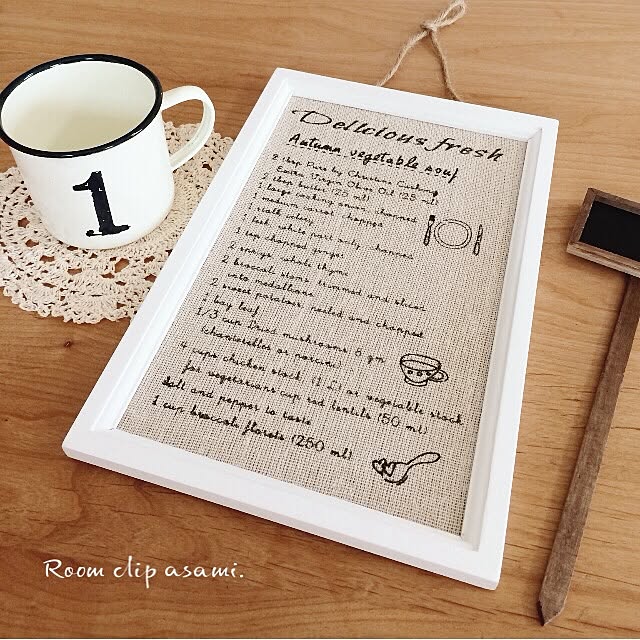 1
Delicious fresh
Autumn vegetable soup
2 tbsp Pure by Christine Cushing
Extra Virgin Olive Oil (25 ml)
2 tbsp butter (25 ml)
1 large cooking onion chopped
medium carrot chopped
1 stalk celery
1 leek, white part only, chopped
1 tsp chopped ginger
2 sprigs whole thyme
2 broccoli stems trimmed and sliced
into medallions
2 sweet potatoes peeled and chopped
1 bay leaf
1/3 cup Dried mushrooms 8 gm
(chanterelles or porcini)
4 cups chicken stock (1 L) or vegetable stock
for vegetarians cup red lentils (50 ml)
Salt and pepper to taste
1 cup broccoli florets (250 ml)
Room clip asami.